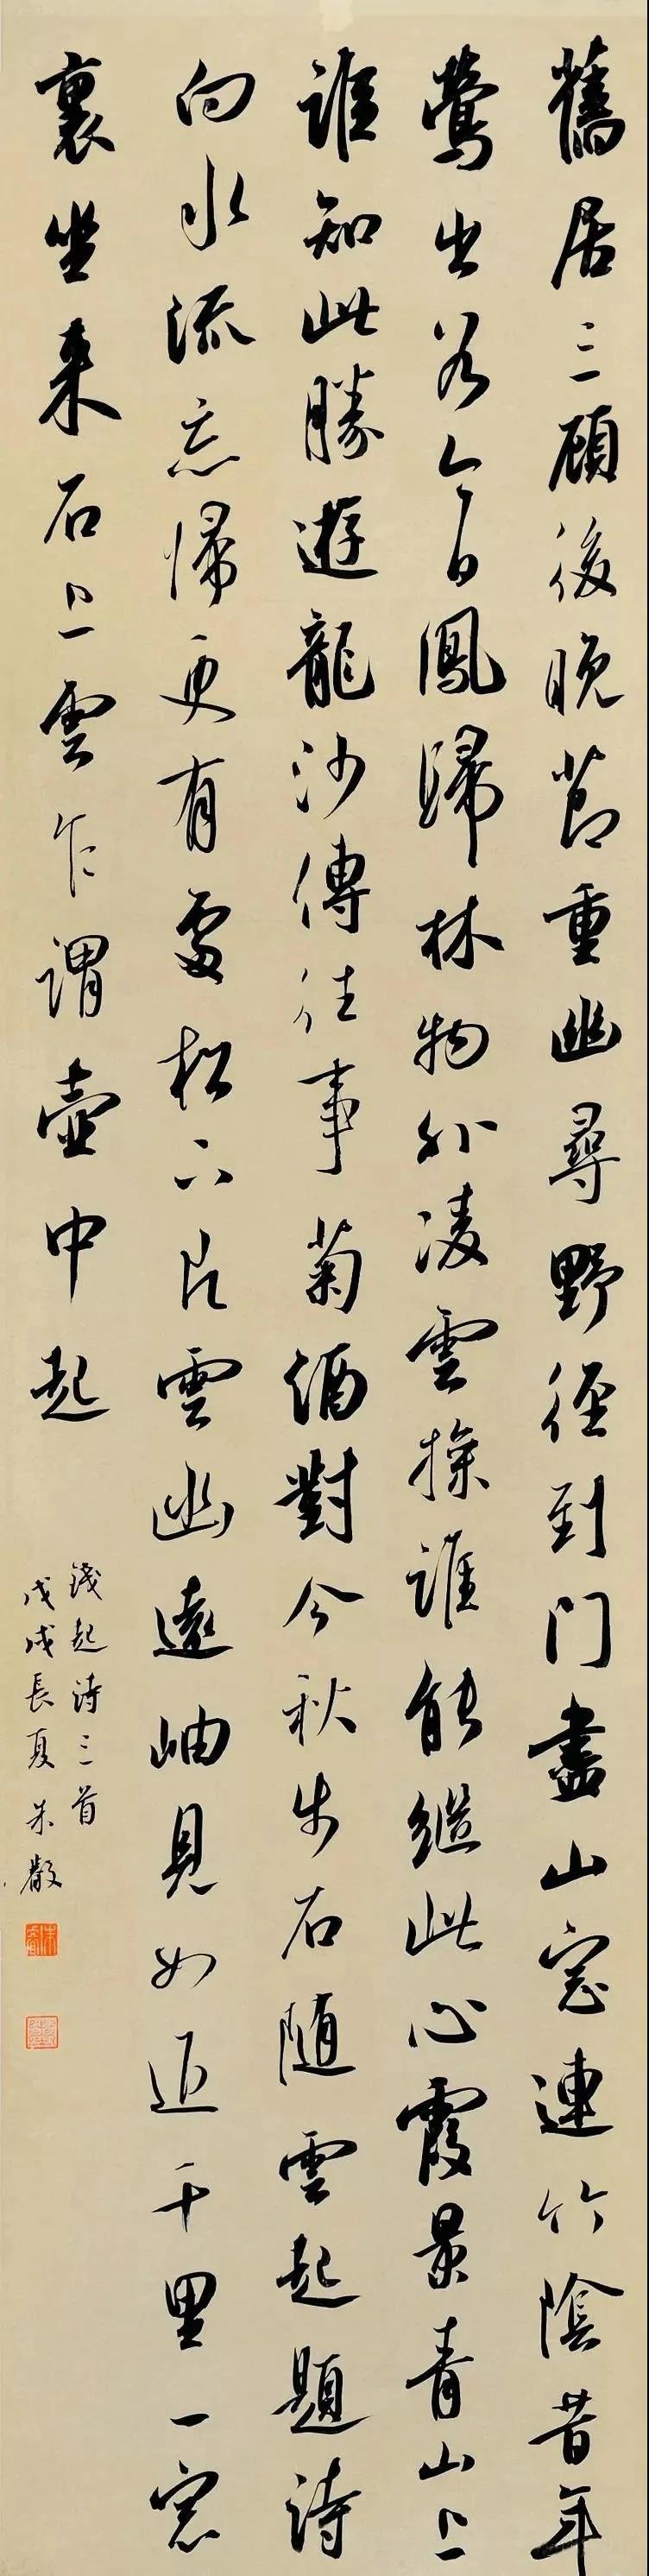 舊居三顧後晚節重幽尋野徑到门盡山窓連竹陰昔年
鶯出谷今日鳳歸林物外凌雲操誰能繼此心霞景青山上
誰知此勝遊龍沙傳往事菊酒對今秋步石隨雲起題詩
向水流忘歸更有處松下片雲幽遠岫見如近千里一窓
裏坐来石上雲乍谓壶中起
錢起诗三首
戊戌長夏朱叡
朱叡